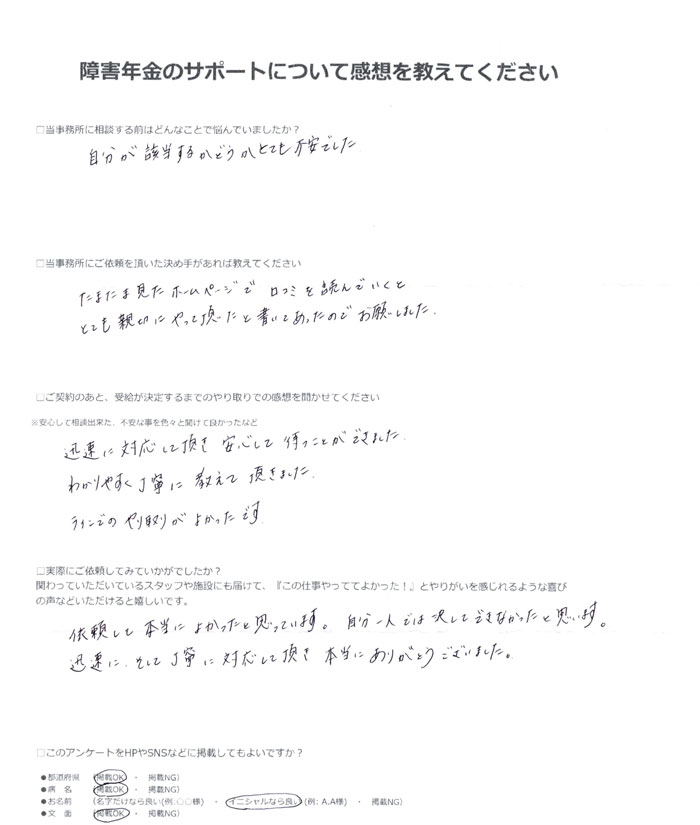 障害年金のサポートについて感想を教えてください
□当事務所に相談する前はどんなことで悩んでいましたか？
自分が該当するかどうかとても不安でした
□当事務所にご依頼を頂いた決め手があれば教えてください
たまたま見たホームページで口コミを読んでいくと
とても親切にやって頂いたと書いてあったのでお願いしました.
□ご契約のあと、受給が決定するまでのやり取りでの感想を聞かせてください
※安心して相談出来た、不安な事を色々と聞けて良かったなど
迅速に対応して頂き安心して待つことができました.
わかりやすく丁寧に教えて頂きました.
ラインでのやり取りがよかったです
□実際にご依頼してみていかがでしたか？
関わっていただいているスタッフや施設にも届けて、『この仕事やっててよかった！』とやりがいを感じれるような喜び
の声などいただけると嬉しいです。
依頼して本当によかったと思っています。自分一人では決してできなかったと思います。
迅速に.そして丁寧に対応して頂き本当にありがとうございました。
□このアンケートをHPやSNSなどに掲載してもよいですか？
●都道府県 (掲載OK ・ 掲載NG)
●病 名 (掲載OK ・ 掲載NG)
●お名前 (名字だけなら良い(例:○○様) ・ イニシャルなら良い(例: A.A様) ・ 掲載NG)
●文 面 (掲載OK ・ 掲載NG)